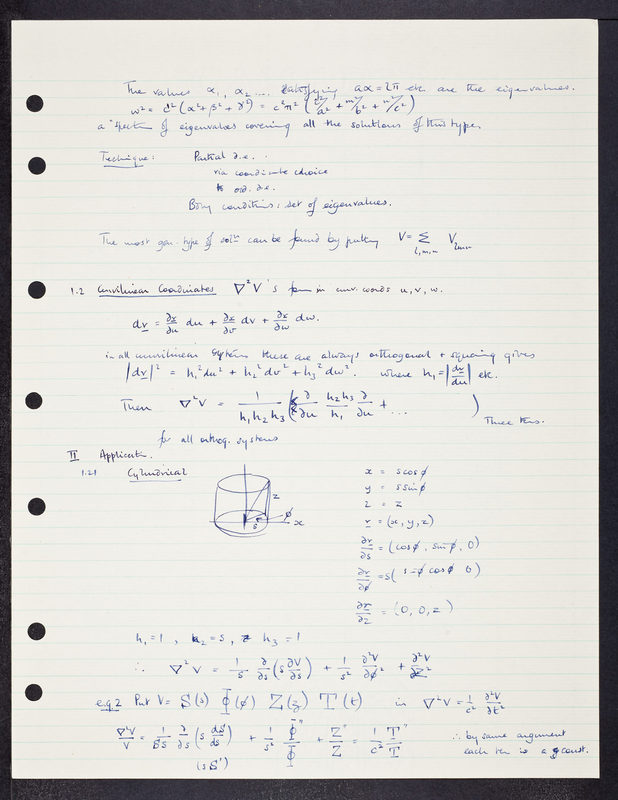 The values α₁, α₂ .... satisfying aα = 2π etc are the eigenvalues.
ω² = c² (α² + β² + γ²) = c²π² ( l²/a² + m²/b² + n²/c² )
a "spectrum of eigenvalues covering all the solutions of this type.
Technique: Partial d.e.
via coordinate choice
to ord. d.e.
Bdry conditions: set of eigenvalues.
The most gen. type of soln can be found by putting V = Σ l,m,n V lmn
1.2 Curvilinear Coordinates ∇²V's form in curv. coords u, v, w.
dr = ∂r/∂u du + ∂r/∂v dv + ∂r/∂w dw.
in all curvilinear systems these are always orthogonal + squaring gives
|dr|² = h₁²du² + h₂²dv² + h₃²dw². where h₁ = |dr/du| etc.
Then ∇²V = 1/(h₁h₂h₃) ( ∂/∂u h₂h₃/h₁ ∂/∂u + ... ) Three tms.
for all orthog. systems
II Application.
1.21 Cylindrical
z
φ
s
x
x = s cos φ
y = s sin φ
z = z
r = (x, y, z)
∂r/∂s = (cos φ, sin φ, 0)
∂r/∂φ = s( s–φ cos φ 0)
∂r/∂z = (0, 0, z)
h₁ = 1, h₂ = s, h₃ = 1
∴ ∇²V = 1/s ∂/∂s (s ∂V/∂s) + 1/s² ∂²V/∂φ² + ∂²V/∂z²
e.g.2 Put V = S(s) Φ(φ) Z(z) T(t) in ∇²V = 1/c² ∂²V/∂t²
∇²V/V = 1/Ss ∂/∂s (s dS/ds) + 1/s² Φ"/Φ + Z"/Z = 1/c² T"/T ∴ by same argument
(s S') each tm is a const.